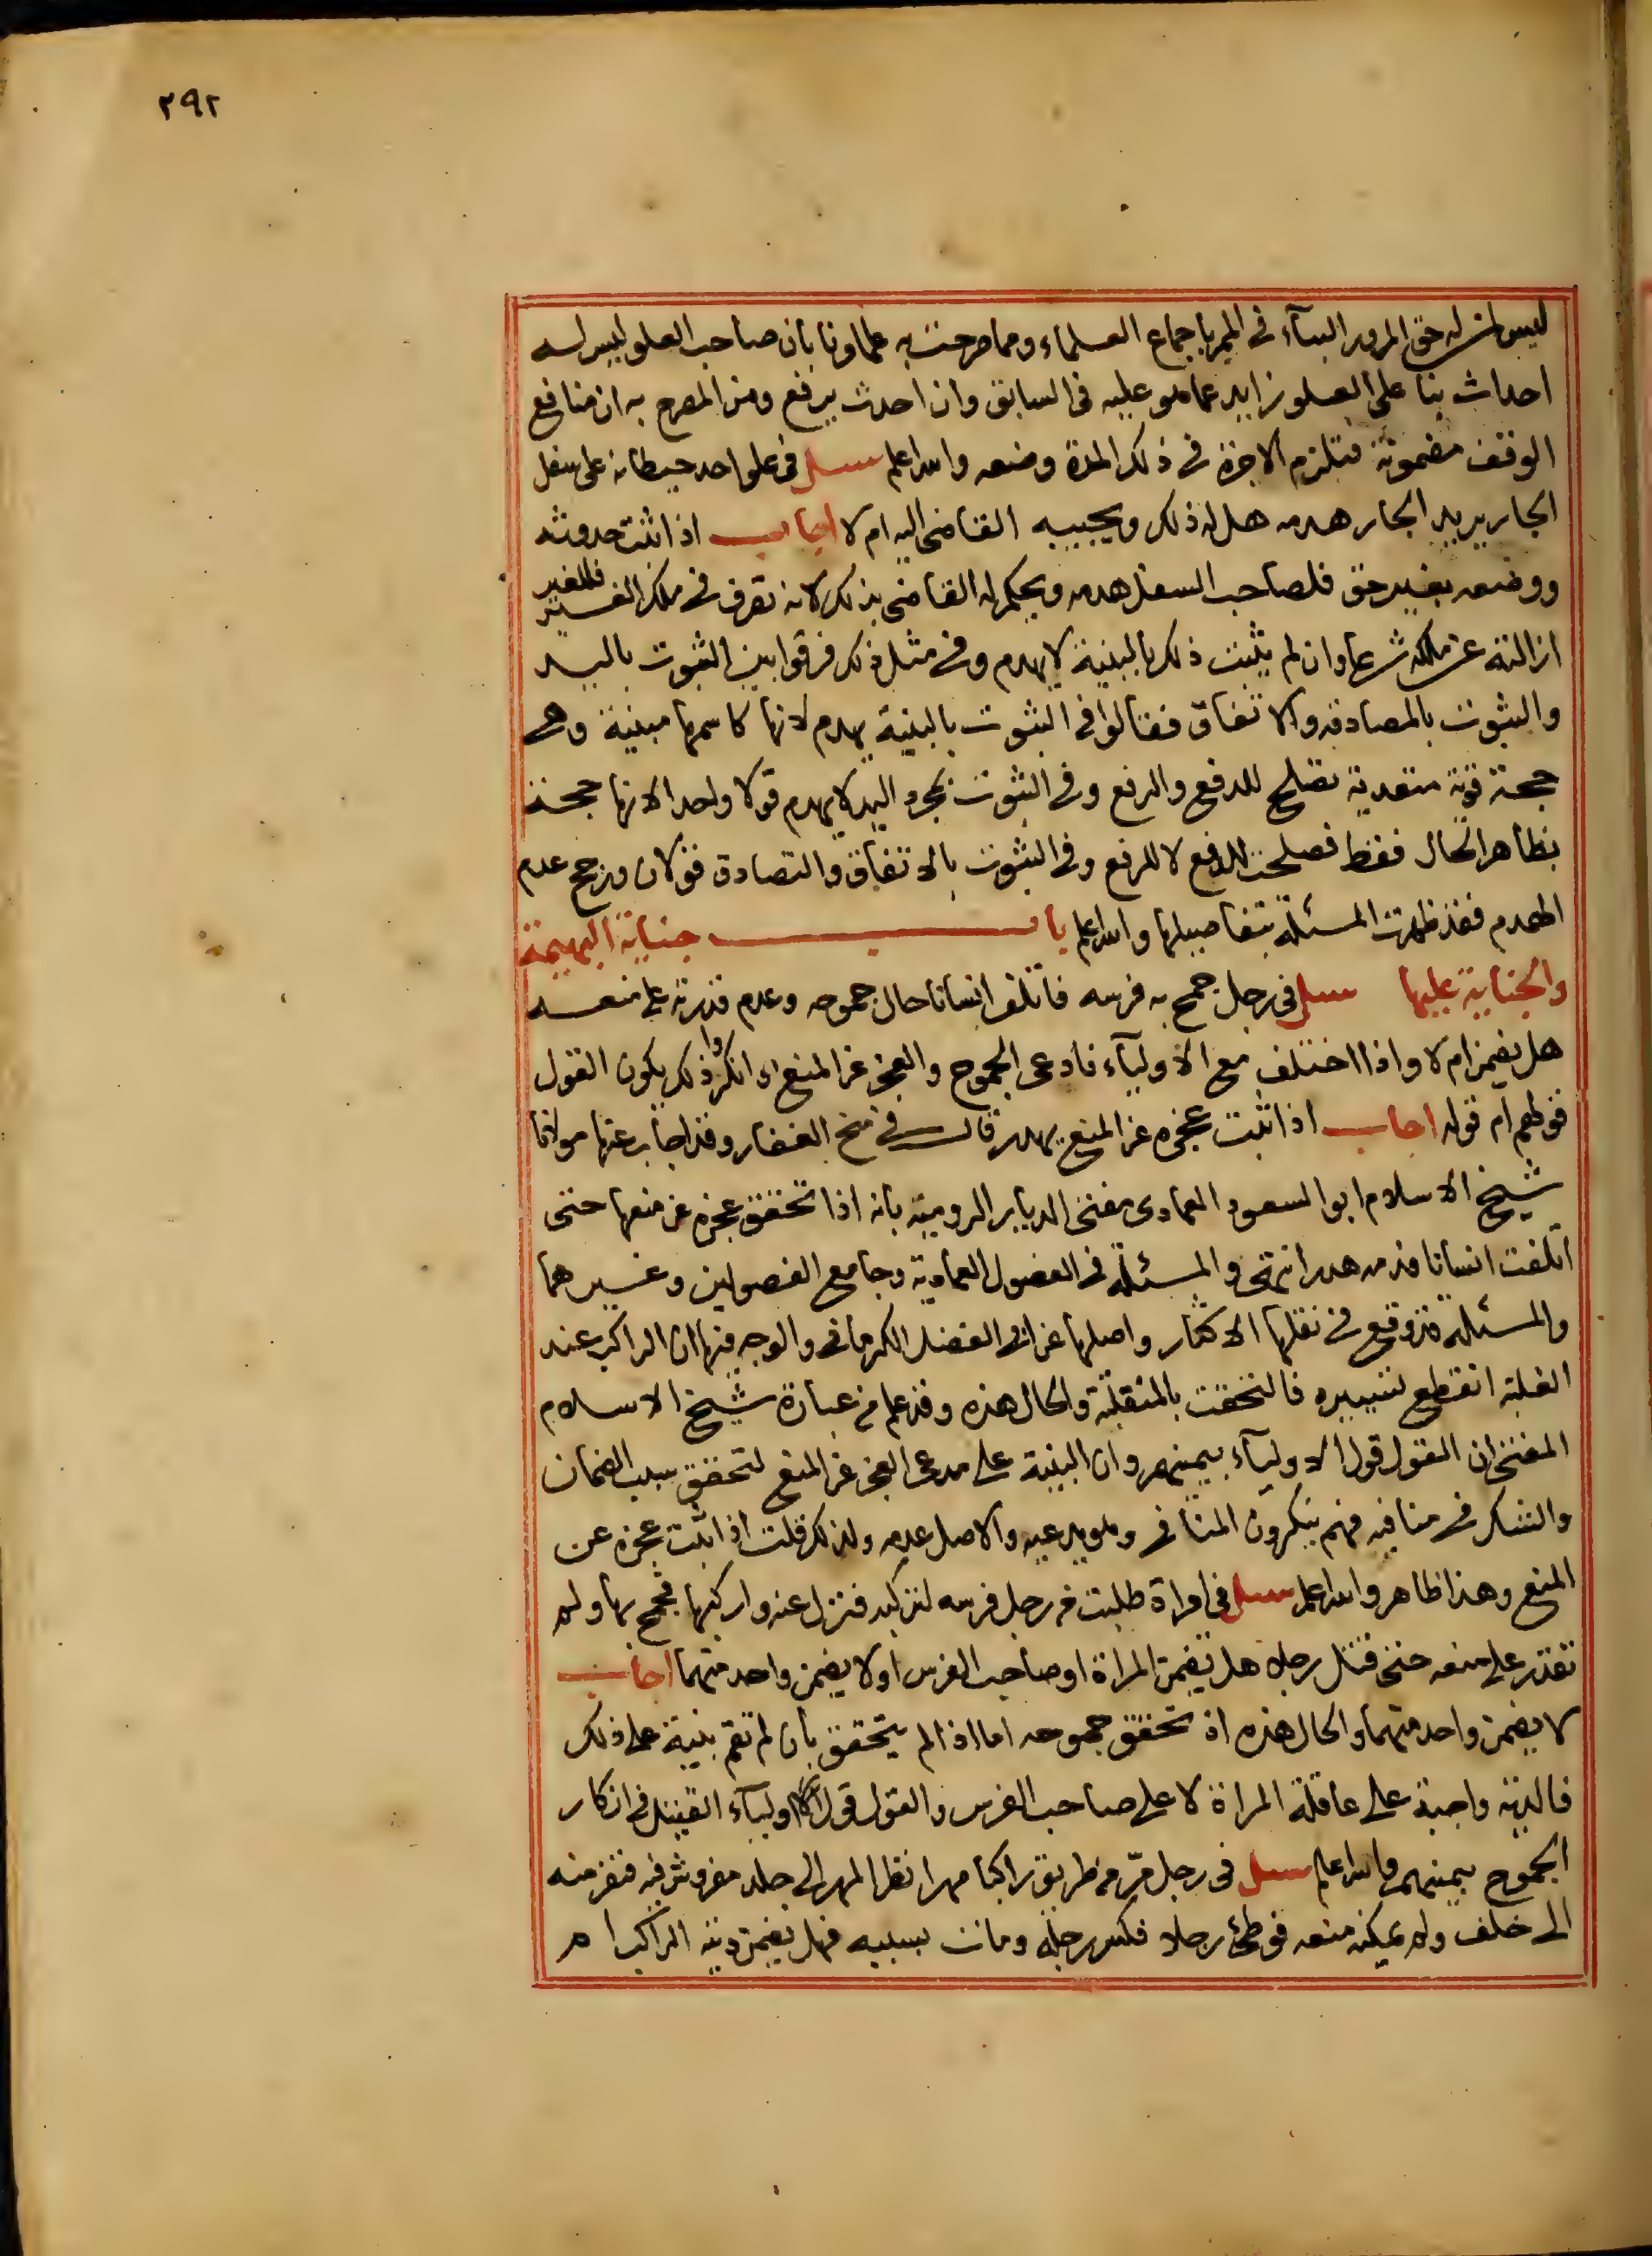 ٢٩٢
ليس لمن له حق المرور البناء في الممر باجماع العلماء ومما صرحت به علماونا بان صاحب العلو ليس له
احداث بنا على العلو زايد عما هو عليه في السابق وان احدث يرفع ومن المصرح به ان منافع
الوقف مضمونة فتلزم الاجرة في ذلك المدة وضعه والله اعلم سئل في علو احد حيطانه على سفل
الجار يريد الجار هدمه هل له ذلك ويجيبه القاضي اليه ام لا اجاب اذا اثبت حدوثه
ووضعه بغير حق فلصاحب السفل هدمه ويحكم له القاضي بذلك لانه تصرف في ملك الغير فللغير
ازالته عن ملكه شرعا وان لم يثبت ذلك بالبينة لا يهدم وفي مثل ذلك فرقوا بين الثبوت باليد
والثبوت بالمصادقة والاتفاق فقالوا في الثبوت بالبينة يهدم لانها كاسمها مبينة وهي
حجة قوية متعدية تصلح للدفع والرفع وفي الثبوت بمجرد اليد لا يهدم قولا واحدا لانها حجة
بظاهر الحال فقط فصلحت للدفع لا للرفع وفي الثبوت بالاتفاق والتصادق قولان ورجح عدم
الهدم فقد ظهرت المسئلة بتفاصيلها والله اعلم باب جناية البهيمة
والجناية عليها سئل في رجل جمح به فرسه فاتلف انسانا حال جموحه وعدم قدرته على منعه
هل يضمن ام لا واذا اختلف مع الاولياء فادعى الجموح والعجز عن المنع وانكروا ذلك يكون القول
قولهم ام قوله اجاب اذا ثبت عجزه عن المنع يهدر قال في منح الغفار وقد اجاب عنها مولانا
شيخ الاسلام ابو السعود العمادى مفتى الديار الرومية بانه اذا تحقق عجزه عن منعها حتى
اتلفت انسانا فدمه هدر انتهى والمسئلة في الفصول العمادية وجامع الفصولين وغيرهما
والمسئلة قد وقع في نقلها الاكثار واصلها عن ابي الفضل الكرماني والوجه فيها ان الراكب عند
الغلبة انقطع تسييره فالتحقت بالمنفلتة والحال هذه وقد علم من عبارة شيخ الاسلام
المفتي ان القول قول الاولياء بيمينهم وان البينة على مدعي العجز عن المنع لتحقق سبب الضمان
والشك في منافيه فهم ينكرون المنافي وهو يدعيه والاصل عدمه ولذلك قلت اذا ثبت عجزه عن
المنع وهذا ظاهر والله اعلم سئل في امراة طلبت من رجل فرسه لتركبه فنزل عنه واركبها فجمح بها ولم
تقدر على منعه حتى قتل رجلا هل تضمن المراة او صاحب الفرس او لا يضمن واحد منهما اجاب
لا يضمن واحد منهما والحال هذه اذ تحقق جموحه اما اذا لم يتحقق بان لم تقم بينة على ذلك
فالدية واجبة على عاقلة المراة لا على صاحب الفرس والقول قول اولياء القتيل في انكار
الجموح بيمينهم والله اعلم سئل في رجل مر من طريق راكبا مهرا نظر المهر الى جلد مفروش فيه فنفر منه
الى خلف ولم يمكنه منعه فوطئ رجلا فكسر رجله ومات بسببه فهل يضمن ديته الراكب ام